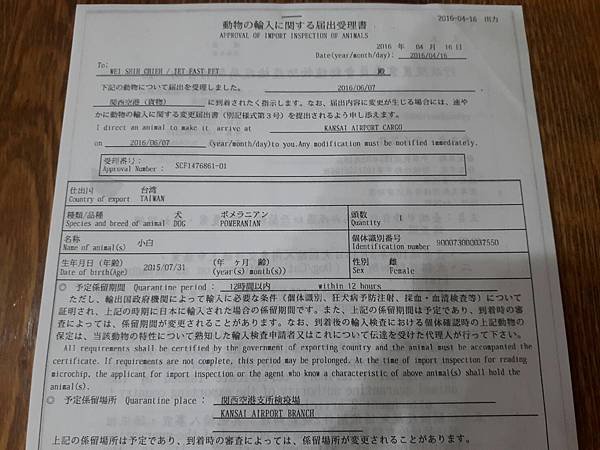 2016-04-16 出力
動物の輸入に関する届出受理書
APPROVAL OF IMPORT INSPECTION OF ANIMALS
2016 年 04 月 16 日
Date(year/month/day): 2016/04/16
To:
WEI SHIH CHIEH / JET FAST PET 殿
下記の動物について届出を受理しました。 2016/06/07
関西空港(貨物) に到着されたく指示します。なお、届出内容に変更が生じる場合には、速や
かに動物の輸入に関する変更届出書(別記様式第3号)を提出されるよう申し添えます。
I direct an animal to make it arrive at KANSAI AIRPORT CARGO
on 2016/06/07 (year/month/day)to you.Any modification must be notified immediately.
受理番号:
Approval Number : SCF1476861-01
仕出国 台湾
Country of export TAIWAN
種類/品種 犬 ポメラニアン 頭数
Species and breed of animal DOG POMERANIAN Quantity 1
名称 小白 個体識別番号
Name of animal(s) Identification number 900073000037550
生年月日(年齢) 2015/07/31 ( 年 ヶ月 齢) 性別 雌
Date of birth(Age) (year(s) month(s)) Sex Female
◎ 予定係留期間 Quarantine period : 12時間以内 within 12 hours
ただし、輸出国政府機関によって輸入に必要な条件(個体識別、狂犬病予防注射、採血・血清検査等)について
証明され、上記の時期に日本に輸入された場合の係留期間です。また、上記の係留期間は予定であり、到着時の審
査によっては、係留期間が変更されることがあります。なお、到着後の輸入検査における個体確認時の上記動物の
保定は、当該動物の特性について熟知した輸入検査申請者又はこれについて伝達を受けた代理人が行って下さい。
All requirements shall be certified by the government of exporting country and the animal must be accompanied the
certificate. If requirements are not complete, this period may be prolonged. At the time of import inspection for reading
microchip, the applicant for import inspection or the agent who know a characteristic of above animal(s) shall hold the
animal(s).
◎ 予定係留場所 Quarantine place : 関西空港支所検疫場
KANSAI AIRPORT BRANCH
上記の係留場所は予定であり、到着時の審査によっては、係留場所が変更されることがあります。